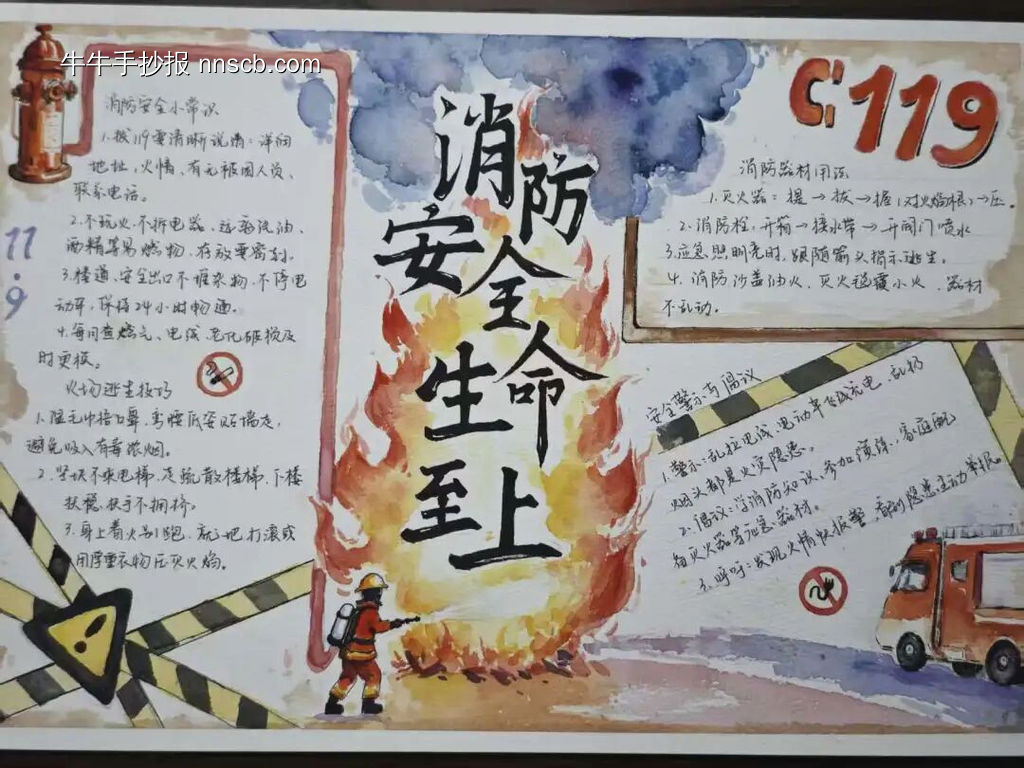 牛牛手抄报 nnscb.com
消防安全小常识
1.拨119要清晰说清：详细
地址、火情、有无被困人员、
联系电话。
2.不玩火、不拆电器、远离汽油、
酒精等易燃物，存放要密封。
3.楼道、安全出口不堆杂物，不停电
动车，保持24小时畅通。
4.每月查燃气、电线，老化破损及
时更换。
火场逃生技巧
1.湿毛巾捂口鼻，弯腰低姿贴墙走，
避免吸入有毒浓烟。
2.坚决不乘电梯，走疏散楼梯，下楼
扶稳扶手不拥挤。
3.身上着火别跑，就地打滚或
用厚重衣物压灭火焰。
11.9
消防
安全
生命
至上
119
消防器材用法
1.灭火器：提→拔→握(对火焰根)→压。
2.消防栓，开箱→接水带→开阀门喷水
3.应急照明亮时，跟随箭头指示逃生。
4.消防沙盖油火，灭火毯覆小火，器材
不乱动。
安全警示与倡议
1.警示：乱拉电线、电动车飞线充电、乱扔
烟头都是火灾隐患。
2.倡议：学消防知识、参加演练，家庭配
备灭火器等应急器材。
3.呼吁：发现火情快报警，看到隐患主动举报。